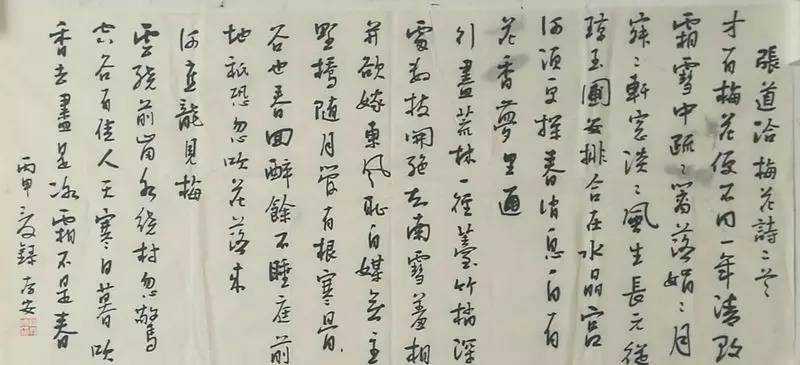 張道洽梅花詩二首
才有梅花便不同一年清致
霜雪中疏々籬落娟々月
寂々軒窗淡々風生長元從
瓊玉圃安排合在水晶宮
何須更探春消息自有
花香夢里通
行盡荒林一徑苔竹梢深
處數枝開絕知南雪羞相
并欲嫁東風恥自媒無主
野橋隨月管有根寒
谷也春回醉餘不睡庭前
地祇恐忽吹花落來
何應龍見梅
雲繞前崗水繞村忽驚
空谷有佳人天寒日暮吹
香去盡是冰霜不是春
丙申夏錄